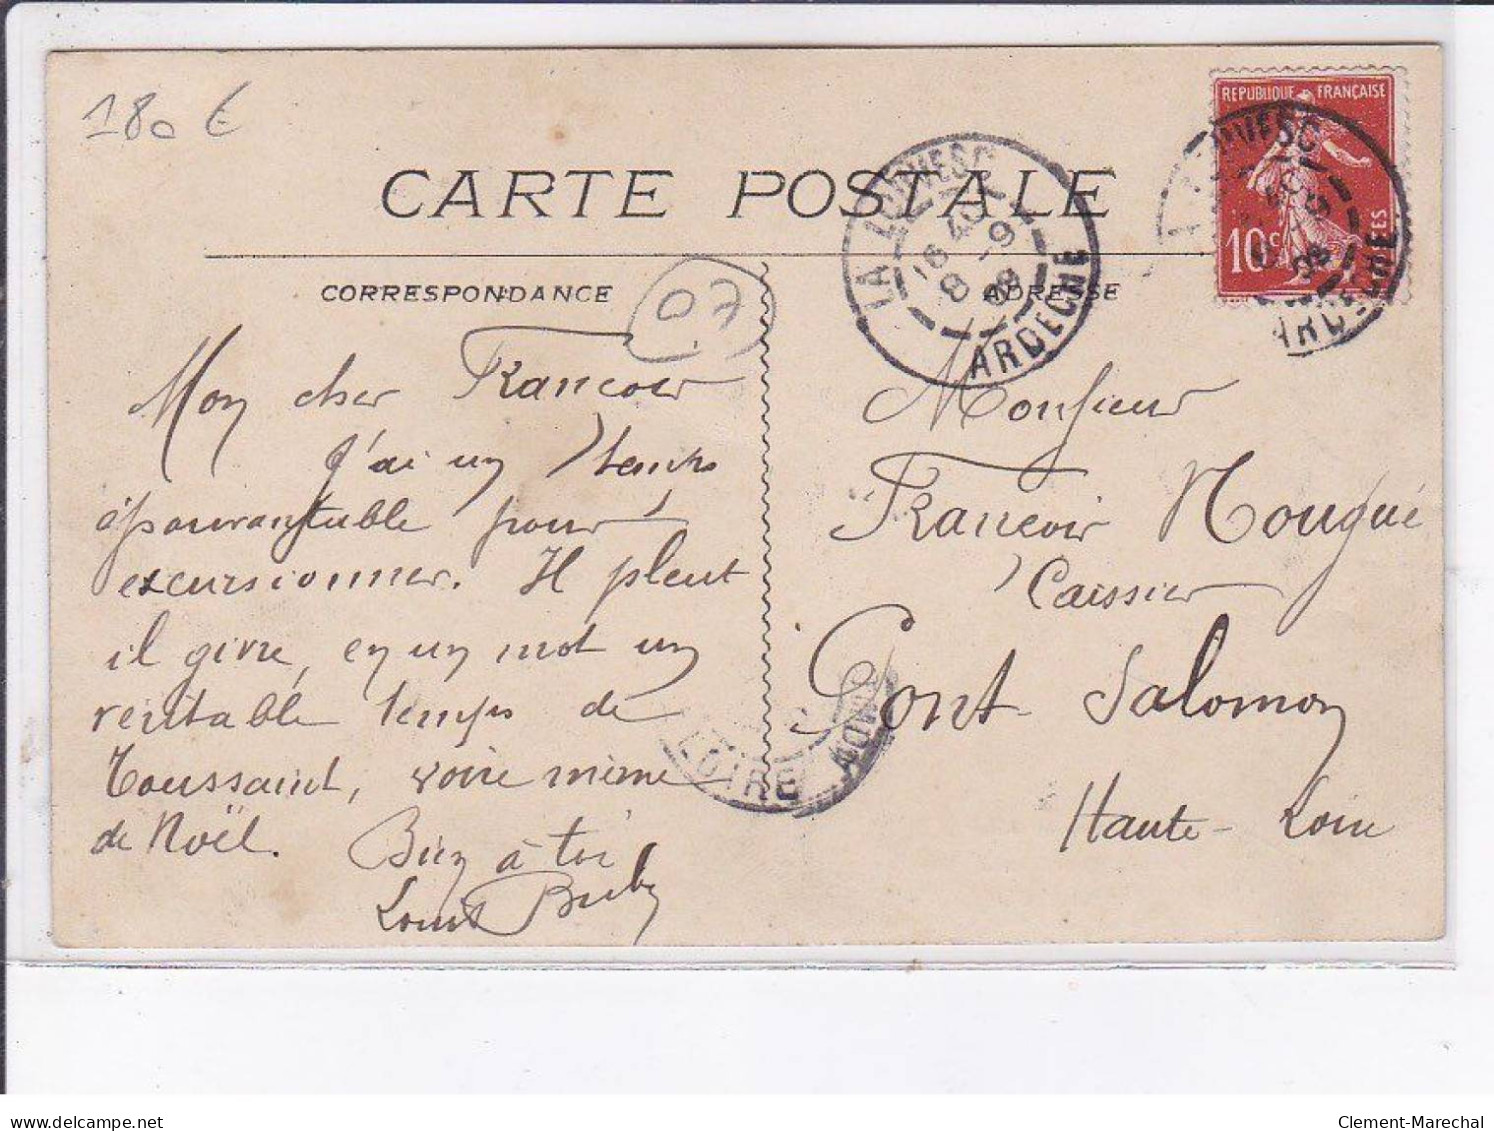 180 €
REPUBLIQUE FRANÇAISE
10c
LOUVESC
ARDECHE
CARTE POSTALE
LA LOUVESC
16 40
8 - 9
08
ARDECHE
CORRESPONDANCE
07
ADRESSE
Mon cher François
J'ai un temps
épouvantable pour
excursionner. Il pleut
il givre, en un mot un
véritable temps de
Toussaint, voire même
de Noël.
Bien à toi
Louis
Monsieur
François Nougué
Caissier
Pont Salomon
Haute-Loire
LOIRE
Clement-Marechal
delcampe.net